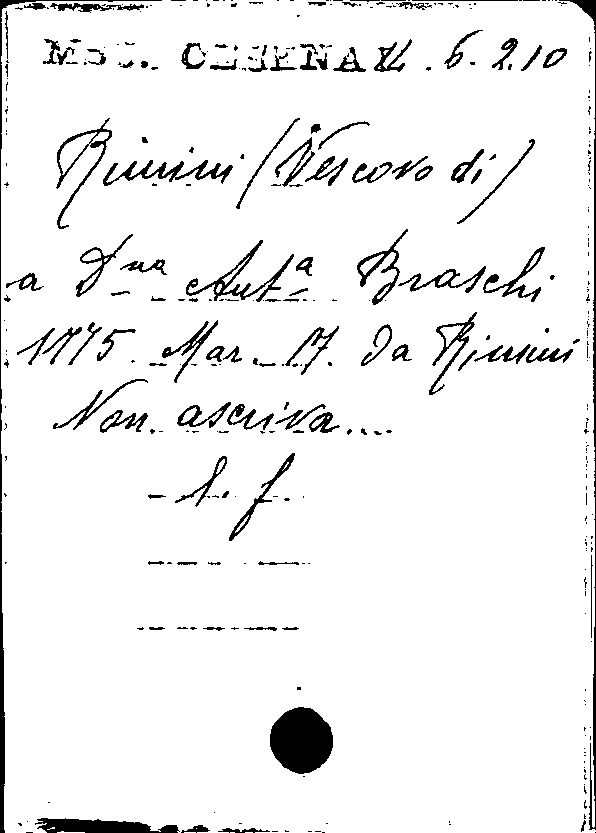 MSS. CESENA 
6. 2.10
Rimini (Vescovo di)
a Dna Anta Braschi
1775. Mar. 17. Da Rimini
Non ascriva....
l. f.